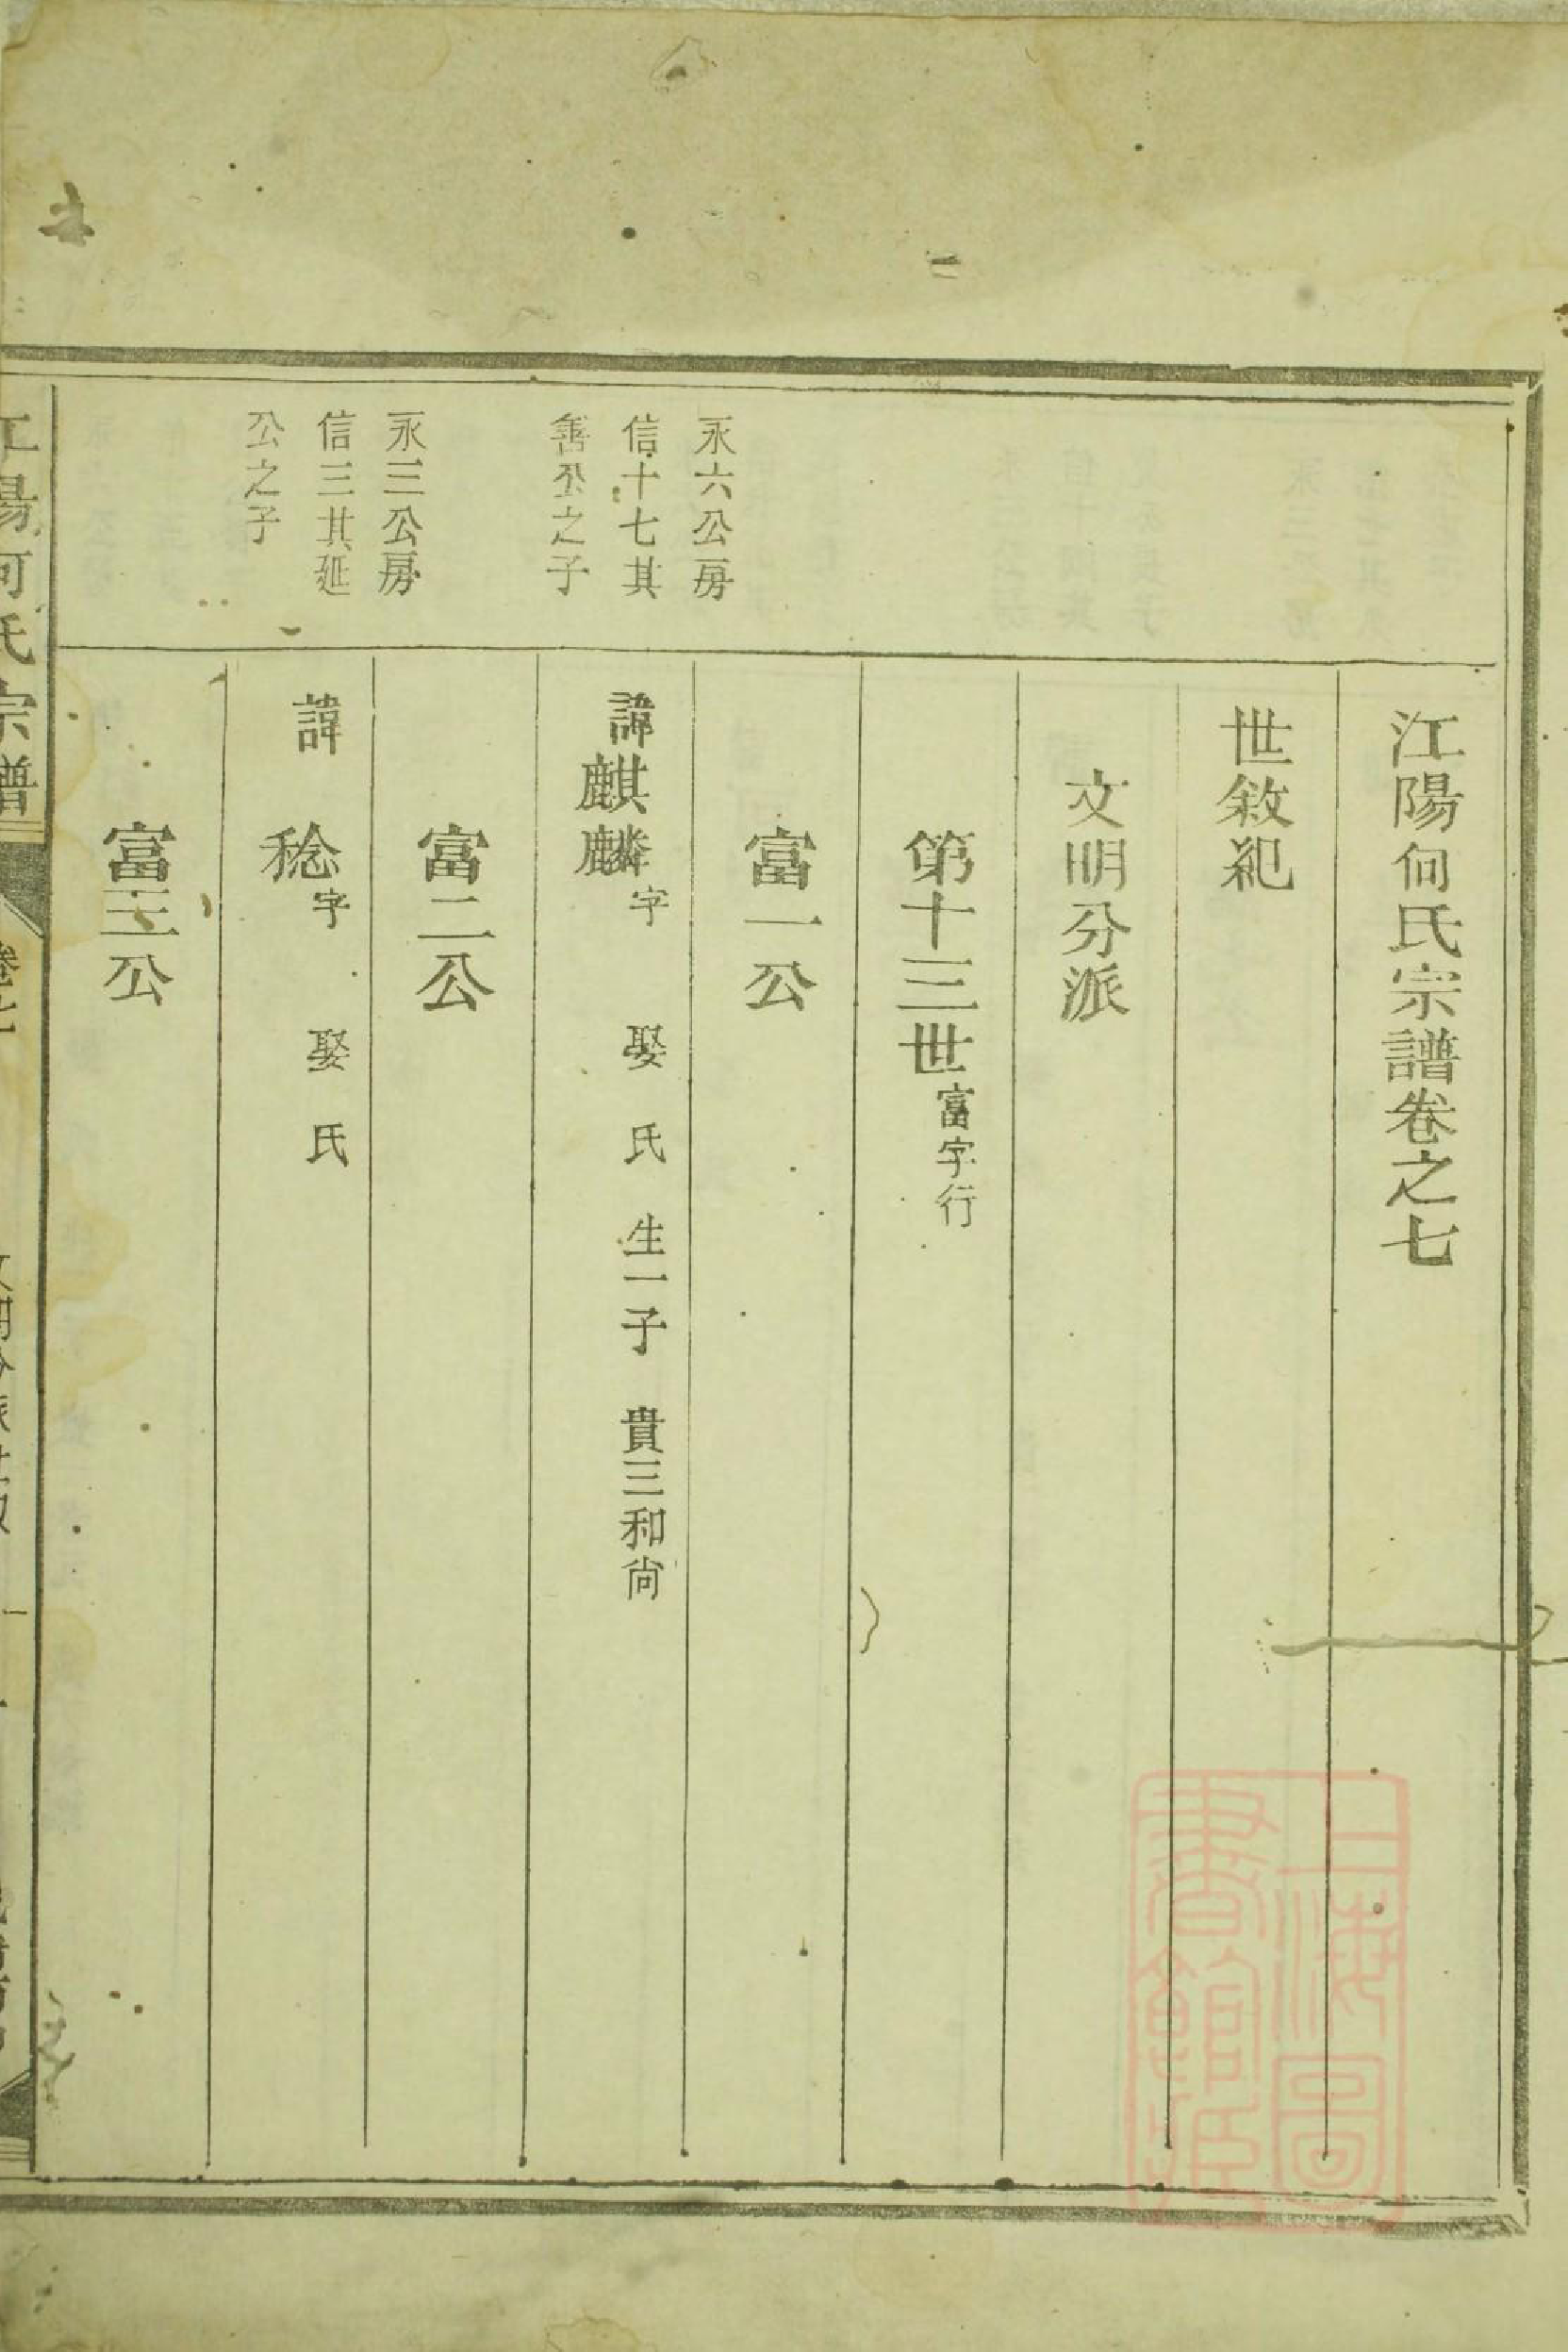 江陽何氏宗譜卷之七
世敘紀
文明分派
第十三世富字行
富一公
永六公房
信十七其
善公之子
諱麒麟字 娶 氏 生一子 貴三和尙
富二公
永三公房
信三其延
公之子
諱 稔字 娶 氏
富三公
江陽何氏宗譜
卷七
文明分派世敘
一
上海圖書館藏